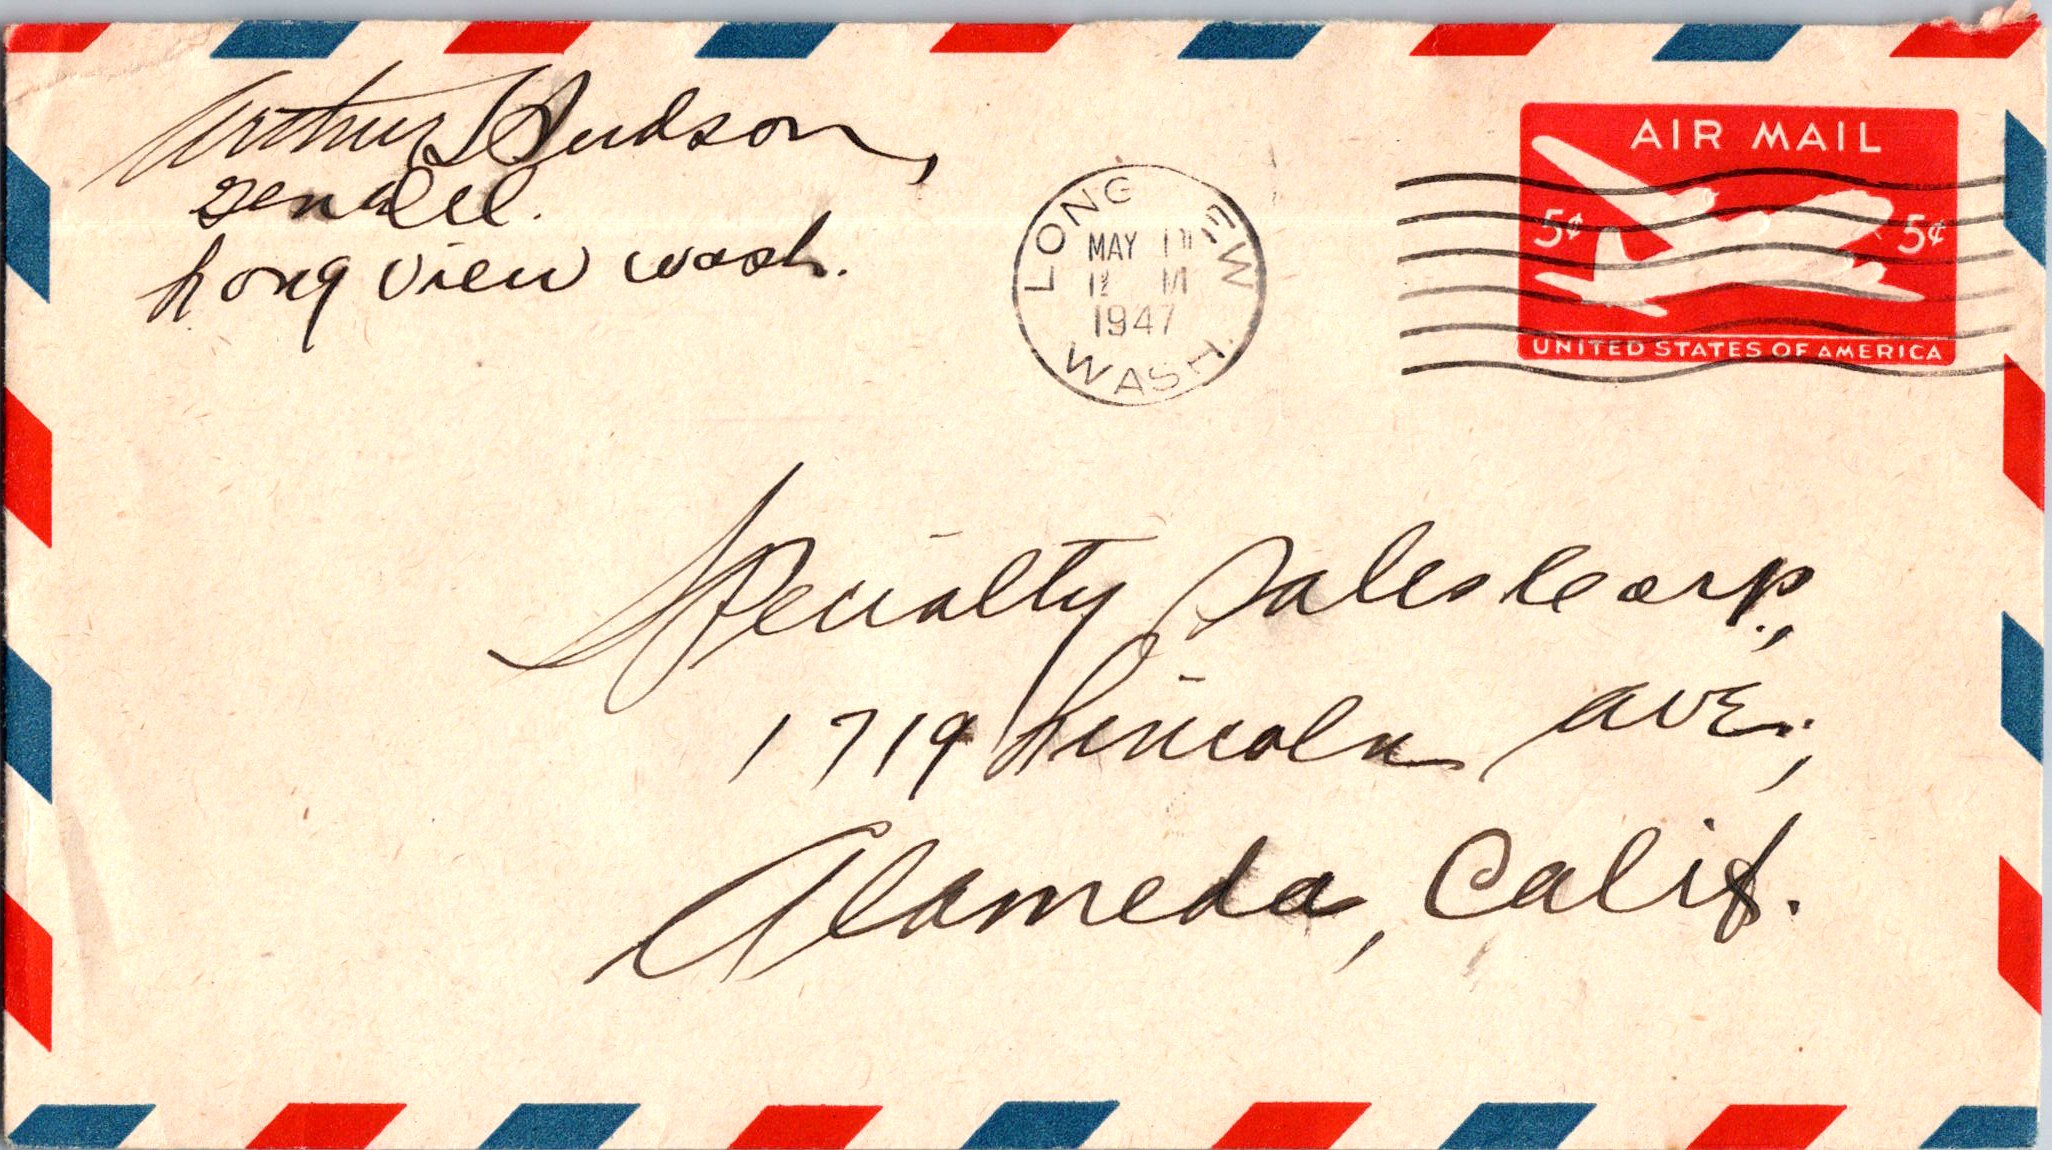 Arthur Hudson,
Gen Del.
Longview Wash.
LONGVIEW
MAY
1947
WASH.
AIR MAIL
5¢ 5¢
UNITED STATES OF AMERICA
Specialty Sales Corp.,
1719 Lincoln Ave.,
Alameda, Calif.